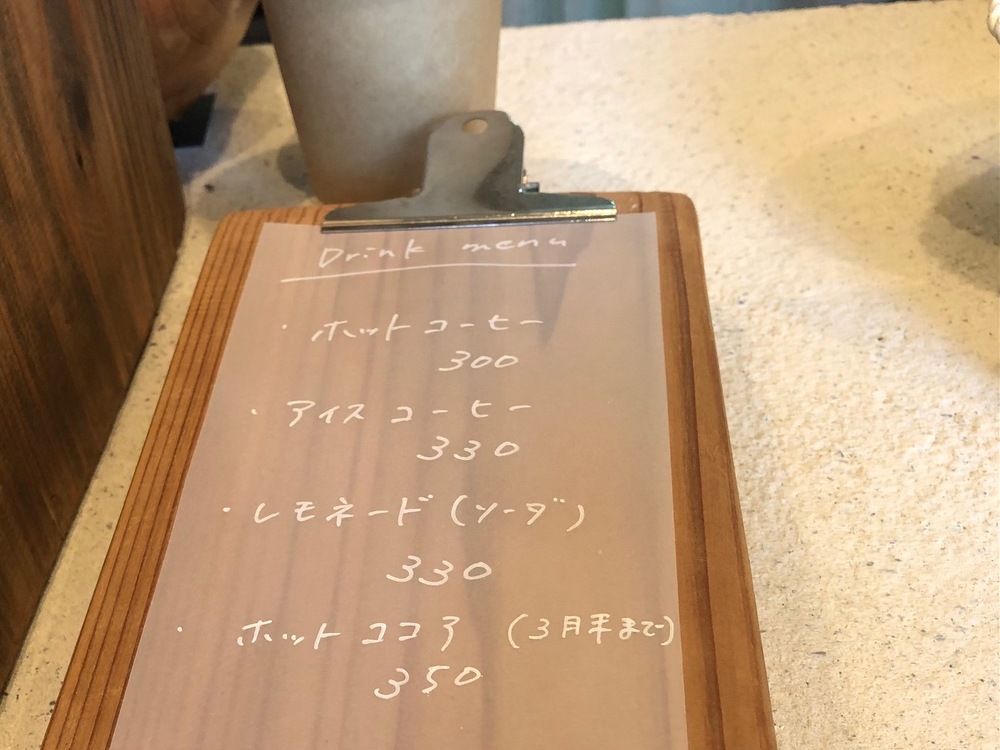 Drink menu
・ホットコーヒー
300
・アイスコーヒー
330
・レモネード(ソーダ)
330
・ホットココア (3月末まで)
350